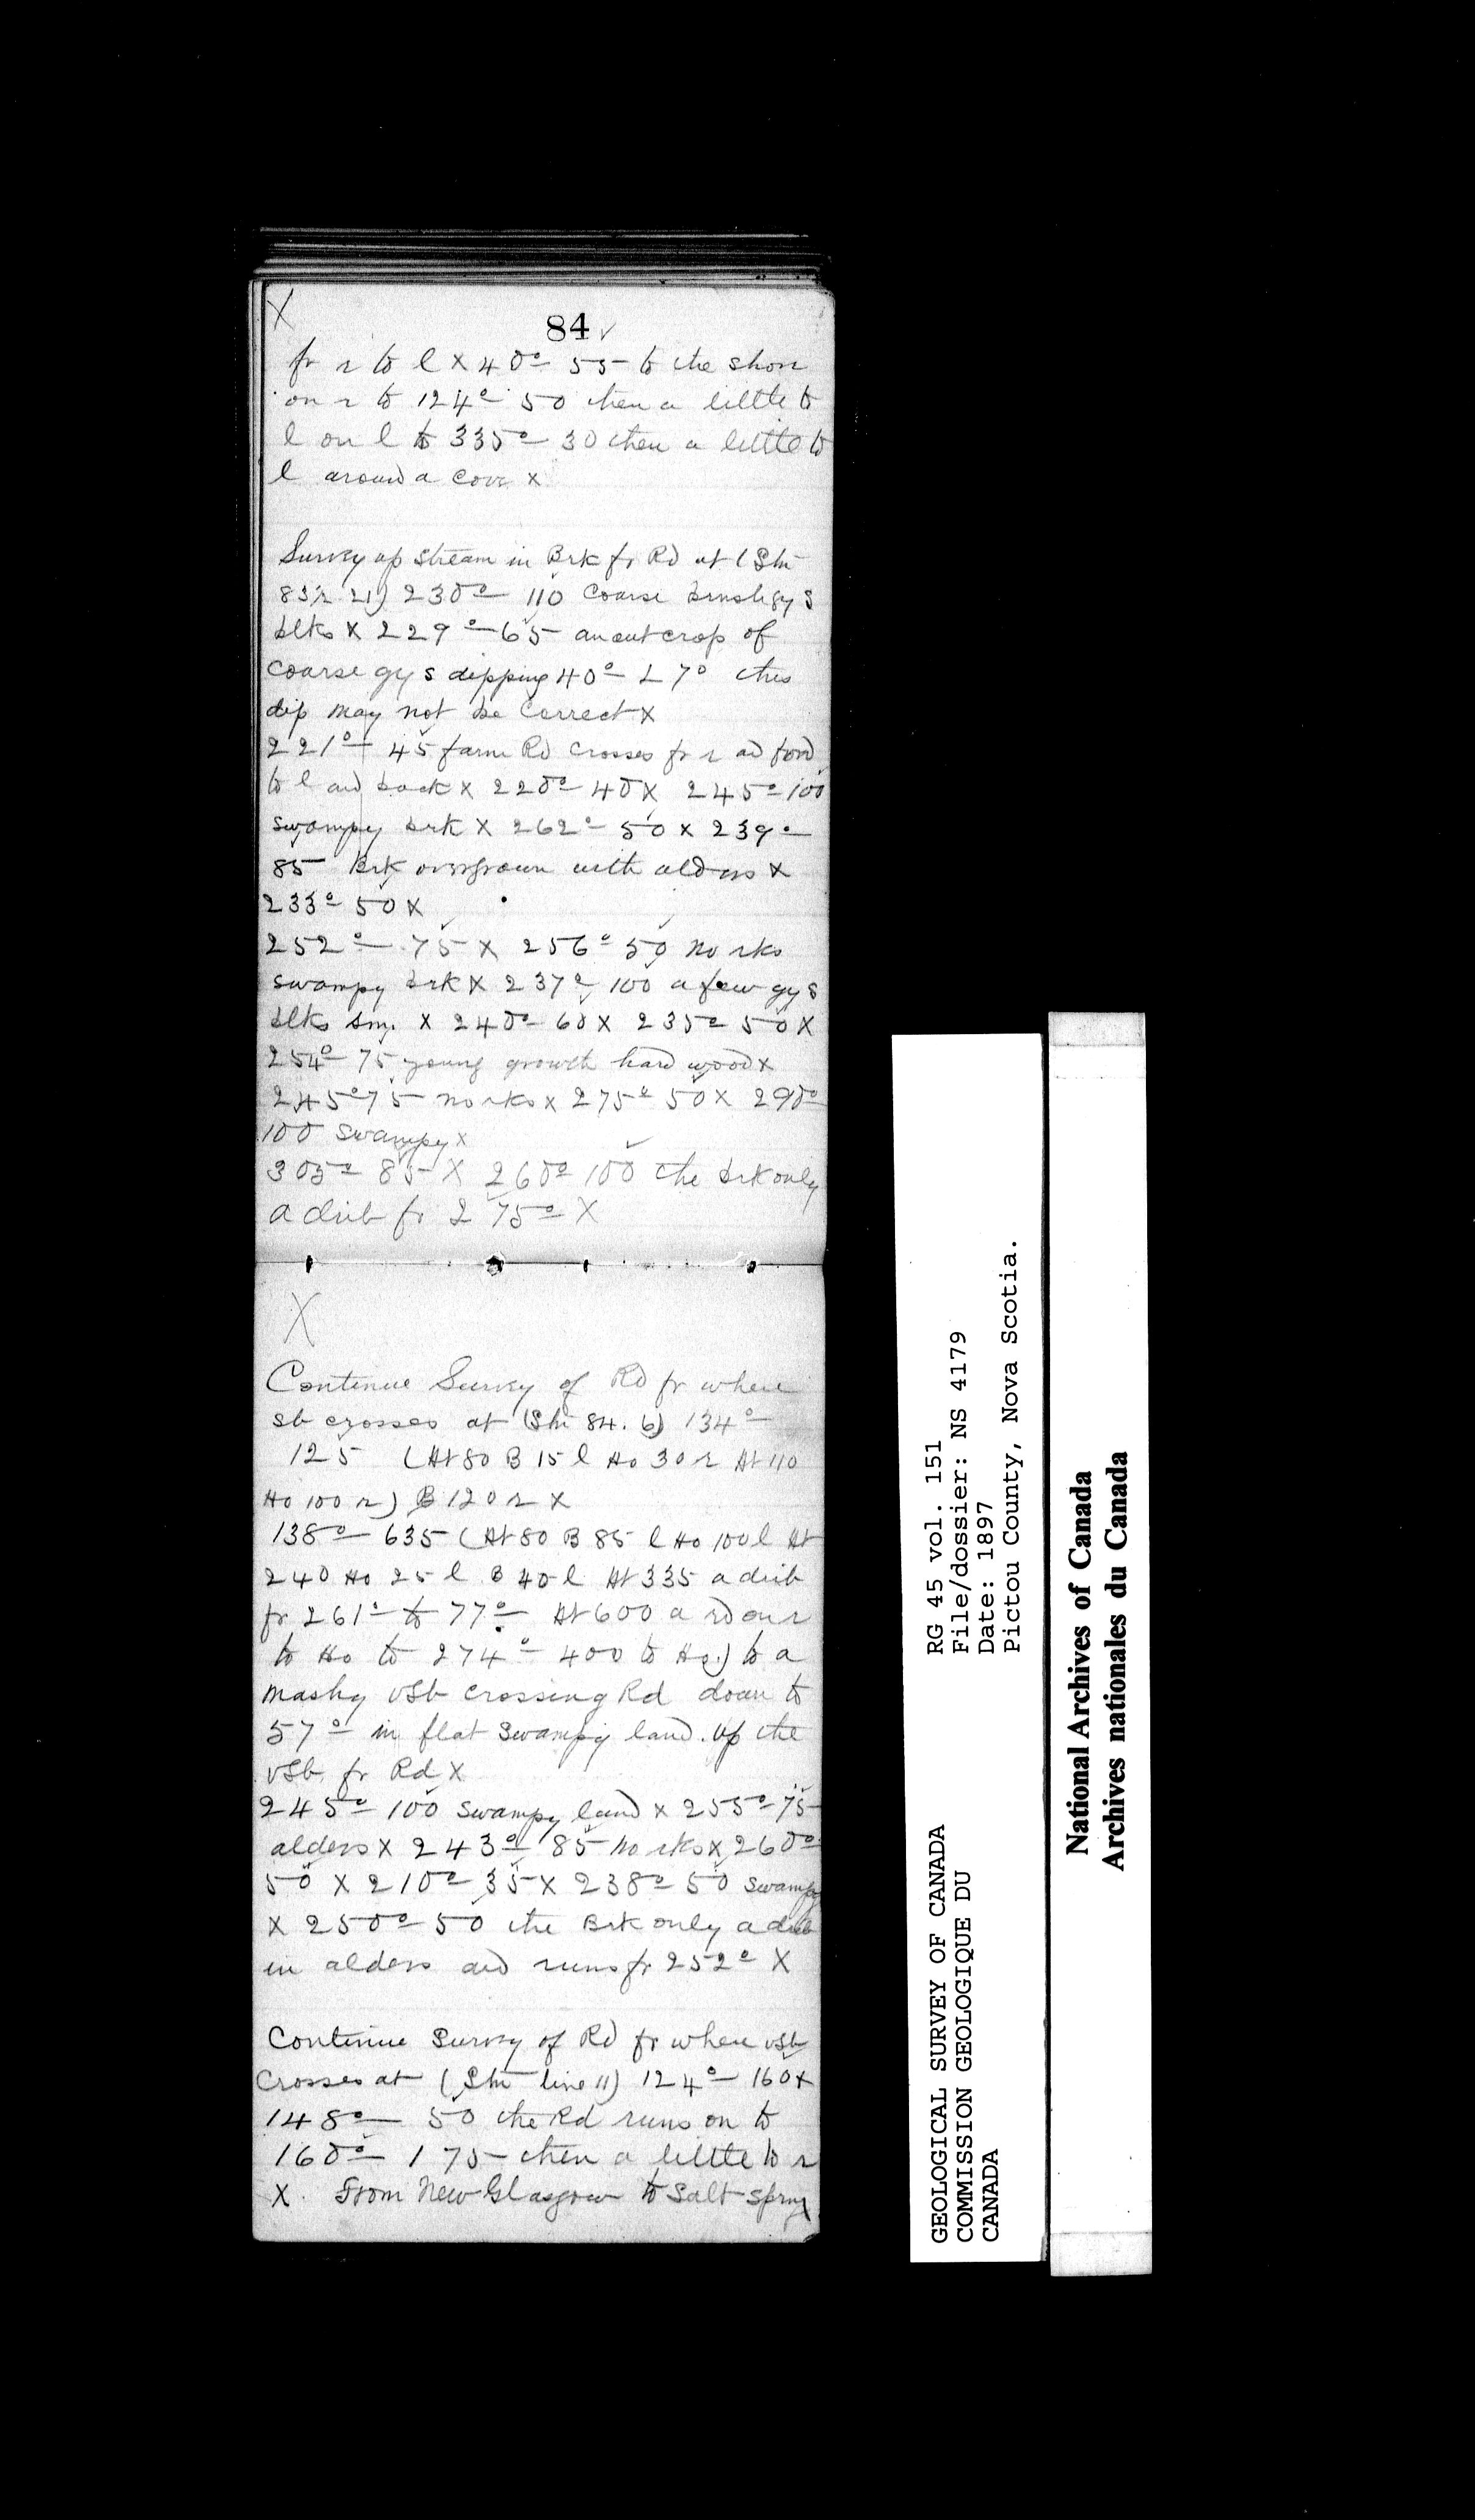 X
84 ✓
fr r to l x 40° 55 to the shore
on r to 124° 50 then a little to
l on l to 335° 30 then a little to
l around a cove x
Survey up stream in Brk fr Rd at (Stn
83 r 21) 230° 110 Coarse gy s
blks x 229° 65 an outcrop of
coarse gy s dipping 40° L 7° this
dip may not be correct x
221° 45 farm Rd crosses fr r
to l and back x 220° 40 x 245° 100
swampy brk x 262° 50 x 239°
85 Brk overgrown with alders x
233° 50 x
252° 75 x 256° 50 no rks
swampy brk x 237° 100 a few gy s
blks x 240° 60 x 235° 50 x
254° 75 young growth hard wood x
245° 75 no rks x 275° 50 x 290°
100 swampy x
305° 85 x 260° 100 the brk only
a drib fr 275° X
X
Continue Survey of Rd fr where
sb crosses at (Stn 84. 6) 134°
125 (At 80 B 15 l Ho 30 r At 110
Ho 100 r) B 120 r x
138° 635 (At 80 B 85 l Ho 100 l At
240 Ho 25 l B 40 l At 335 a drib
fr 261° to 77° At 600 a rd on r
to Ho to 274° 400 to Ho.) to a
mashy vsb crossing Rd down to
57° in flat swampy land. Up the
vsb fr Rd x
245° 100 swampy land x 255° 75
alders x 243° 85 no rks x 260°
50 x 210° 35 x 238° 50 swampy
x 250° 50 the Brk only a drib
in alders and runs fr 252° X
Continue Survey of Rd fr where vsb
crosses at (Stn line 11) 124° 160 x
148° 50 the Rd runs on to
160° 175 then a little to r
X. From New Glasgow to Salt spring
RG 45 vol. 151
File/dossier: NS 4179
Date: 1897
Pictou County, Nova Scotia.
GEOLOGICAL SURVEY OF CANADA
COMMISSION GEOLOGIQUE DU
CANADA
National Archives of Canada
Archives nationales du Canada